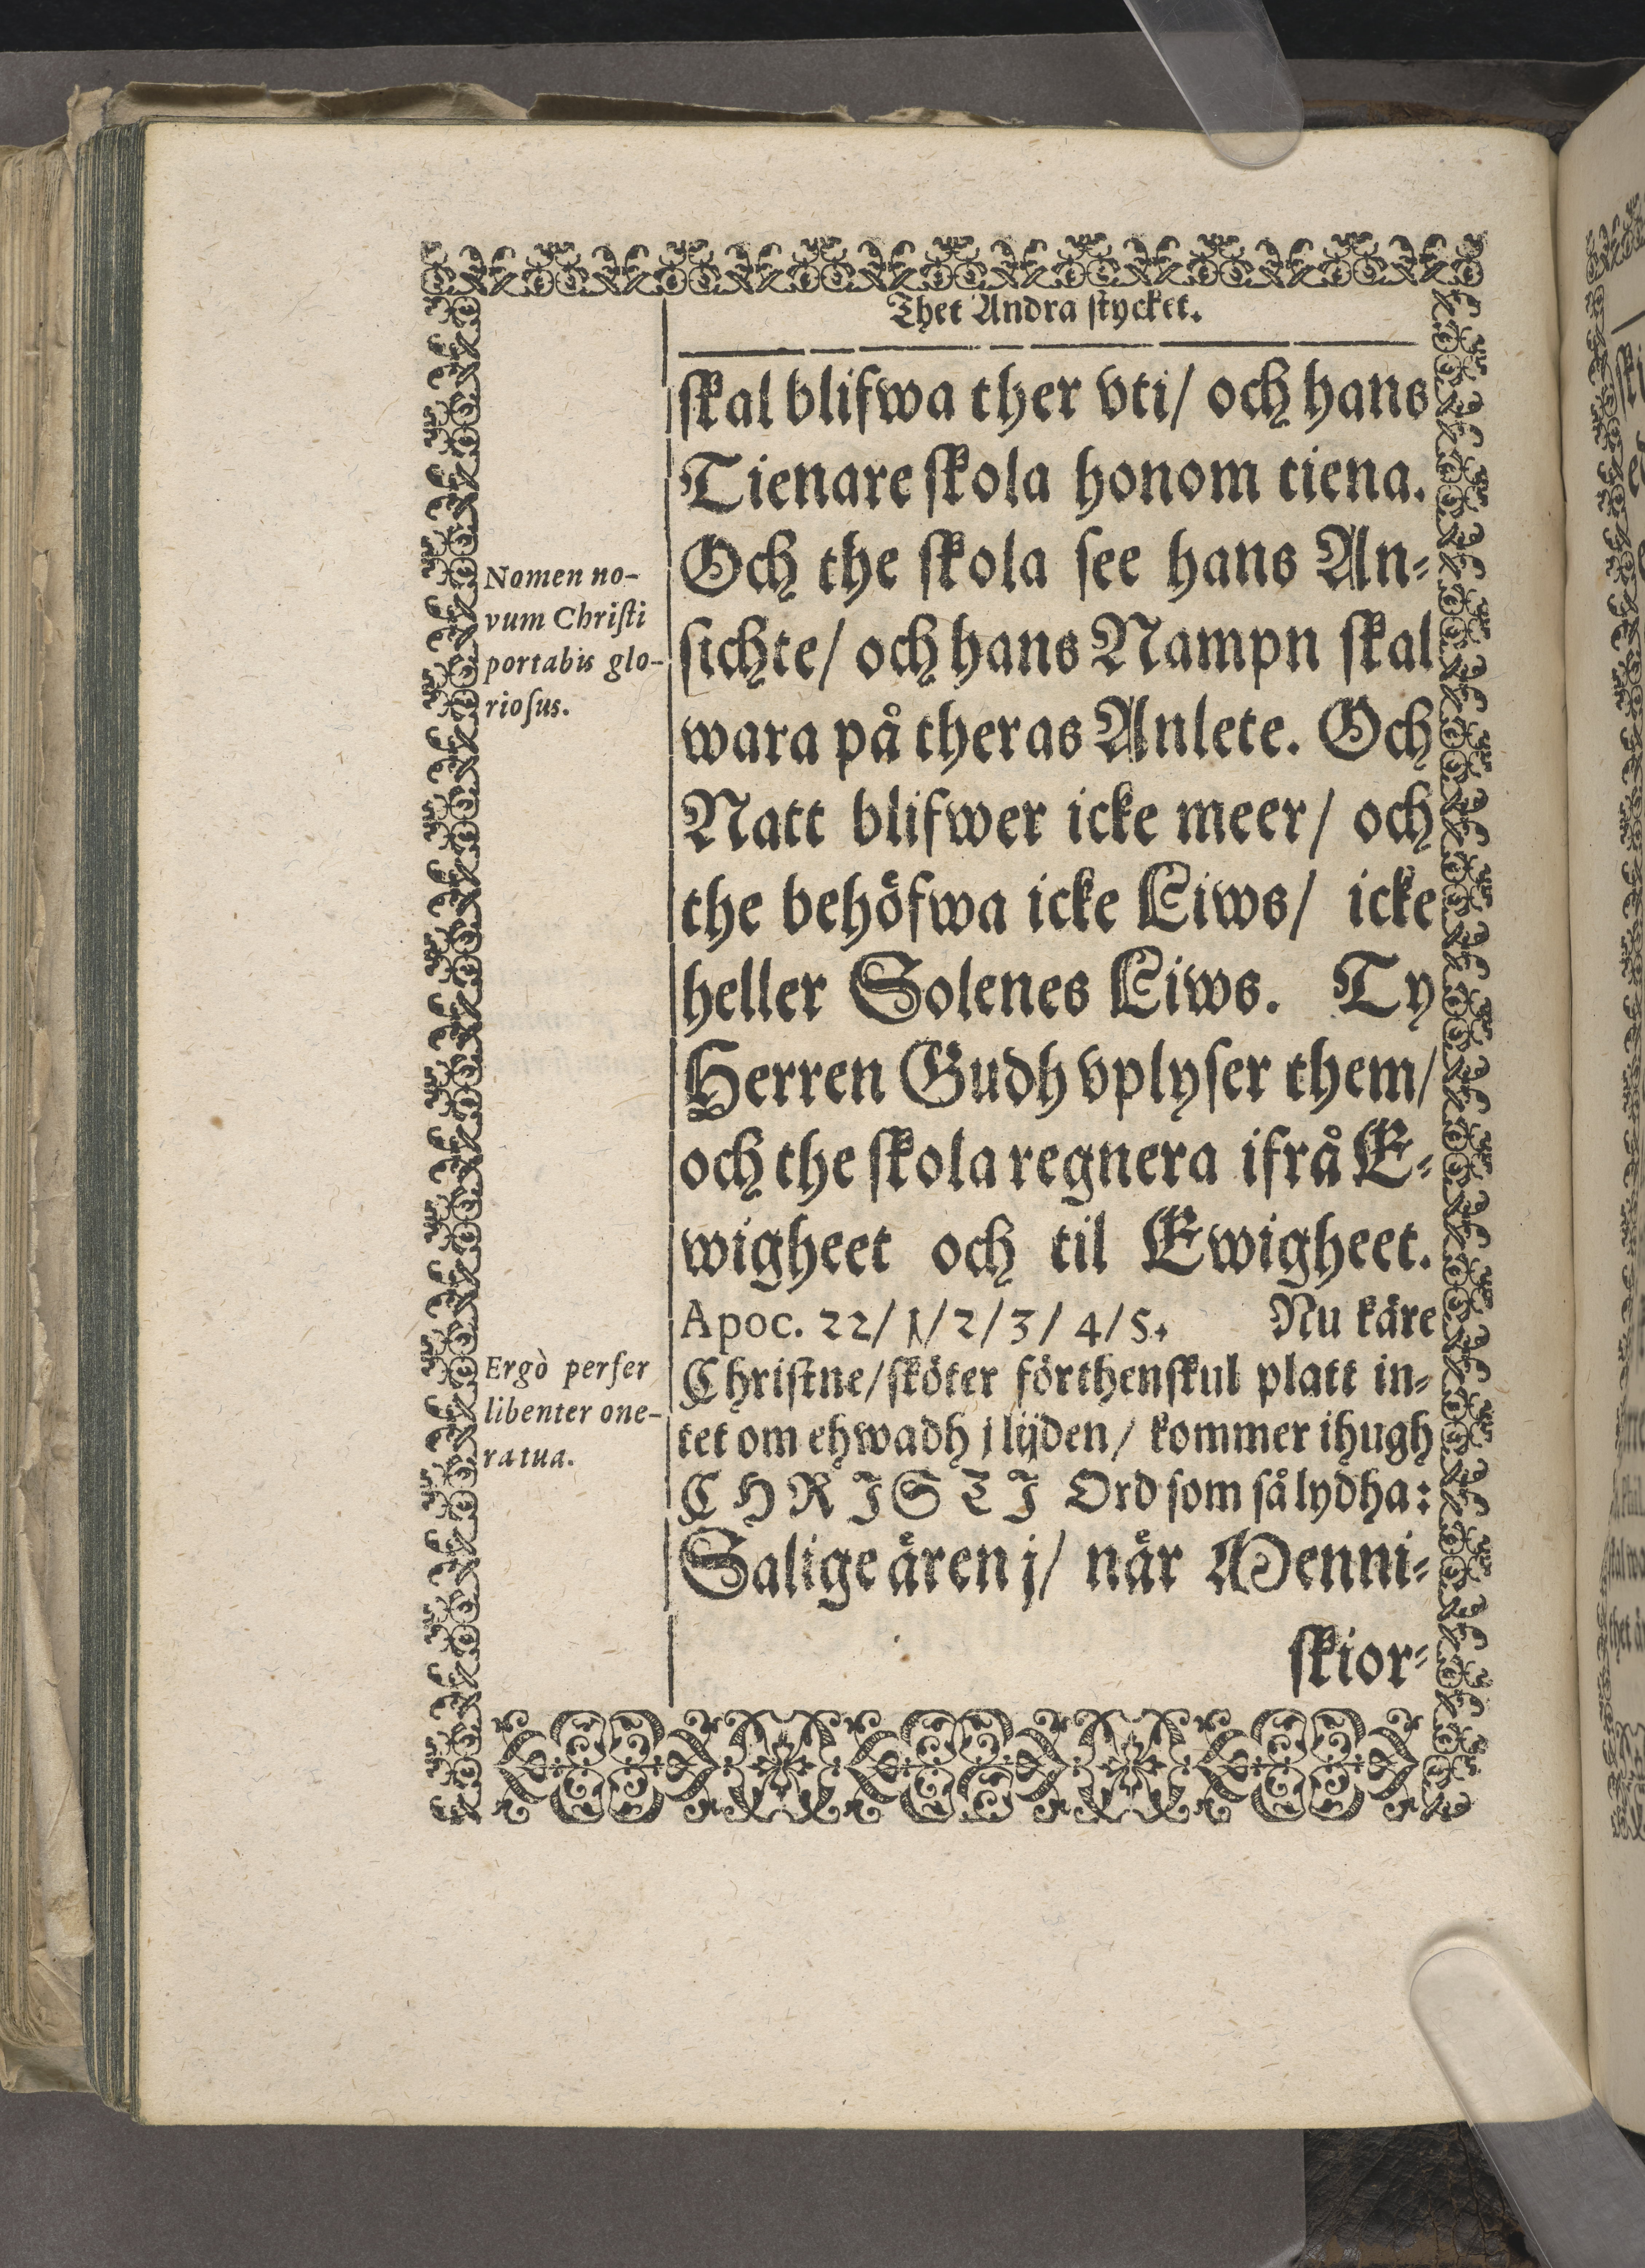 Thet Andra stycket.
skal blifwa ther vti/ och hans
Tienare skola honom tiena.
Och the skola see hans An-
sichte/ och hans Nampn skal
wara på theras Anlete. Och
Natt blifwer icke meer/ och
the behöfwa icke Liws/ icke
heller Solenes Liws. Ty
Herren Gudh vplyser them/
och the skola regnera ifrå E-
wigheet och til Ewigheet.
Apoc. 22/1/2/3/4/5. Nu käre
Christne/sköter förthenskul platt in-
tet om ehwadh j lijden/ kommer ihugh
CHRISTI Ord som så lydha:
Salige ären j/ när Menni-
skior-
Nomen no-
vum Christi
portabis glo-
riosus.
Ergò perfer
libenter one-
ra tua.